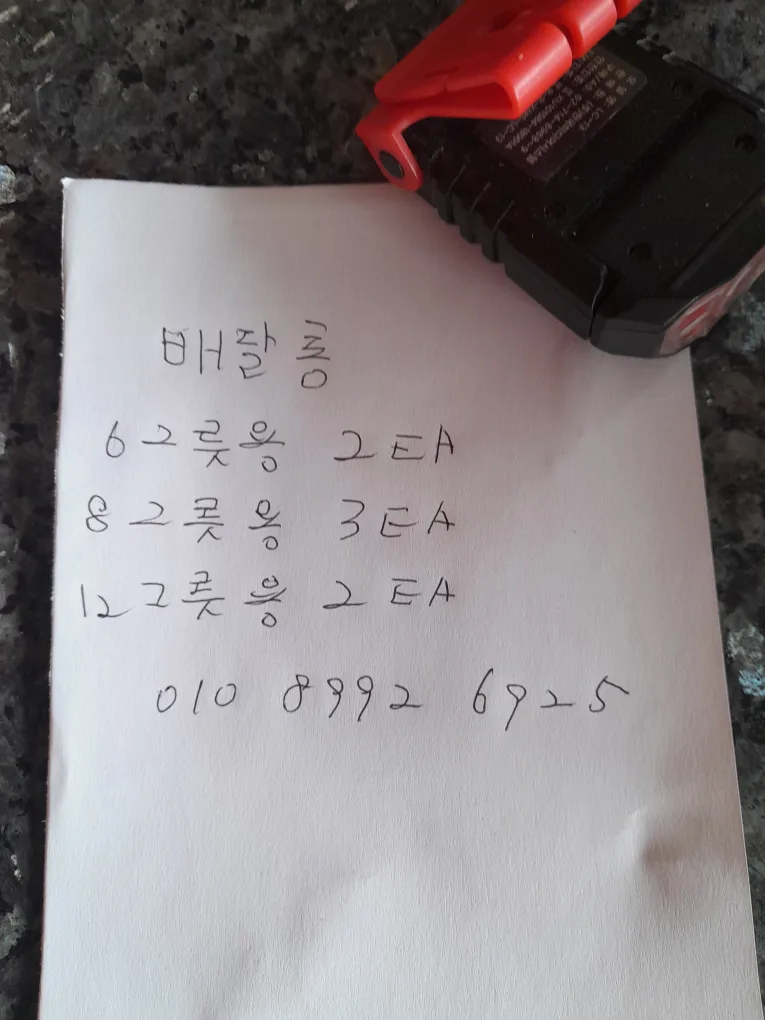 배달통
6그릇용 2EA
8그릇용 3EA
12그릇용 2EA
010 8992 6925